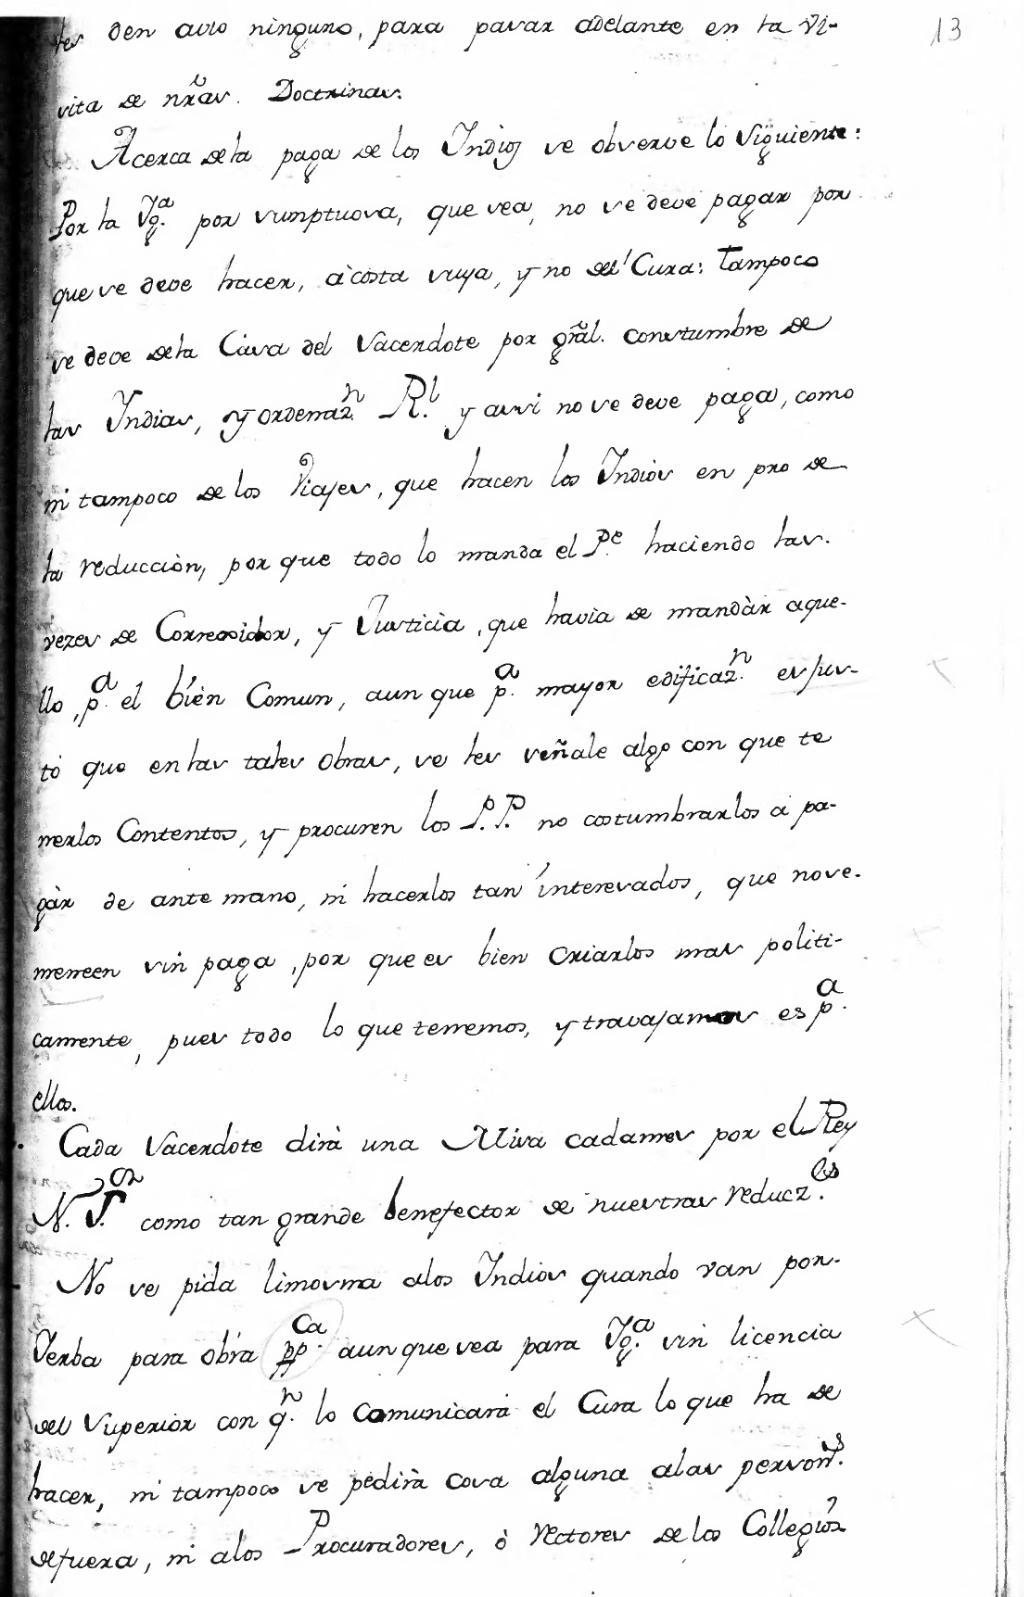 13
les den avio ninguno, para pasar adelante en la Vi-
sita de nr̃as. Doctrinas.
Acerca de la paga de los Indios se observe lo siguiente:
Por la Yg.ª por sumptuosa, que sea, no se deve pagar por
que se deve hacer, à costa suya, y no del Cura: tampoco
se deve de la Casa del Sacerdote por grãl. constumbre de
las Indias, y ordenaz.n R.l y assi no se deve paga, como
ni tampoco de los Viajes, que hacen los Indios en pro de
la reducciòn, por que todo lo manda el P.e haciendo las.
vezes de Corregidor, y Justicia, que havia de mandàr aque-
llo, p.a el bien Comun, aun que p.a mayor edificaz.n es jus-
to que en las tales obras, se les señale algo con que te
nerlos Contentos, y procuren los P.P. no costumbrarlos a pa-
gàr de ante mano, ni hacerlos tan interesados, que no se.
meneen sin paga, por que es bien Criarlos mas politi-
camente, pues todo lo que tenemos, y travajamos es p.a
ellos.
Cada Sacerdote dirà una Misa cada mes por el Rey
N. S.or como tan grande benefector de nuestras reducz.es
No se pida limosna a los Indios quando van por-
Yerba para obra pp.ca aun que sea para Yg.ª sin licencia
del Superior con q.n lo Comunicarà el Cura lo que ha de
hacer, ni tampoco se pedirà cosa alguna a las person.s
de fuera, ni a los Procuradores, ò rectores de los Collegios